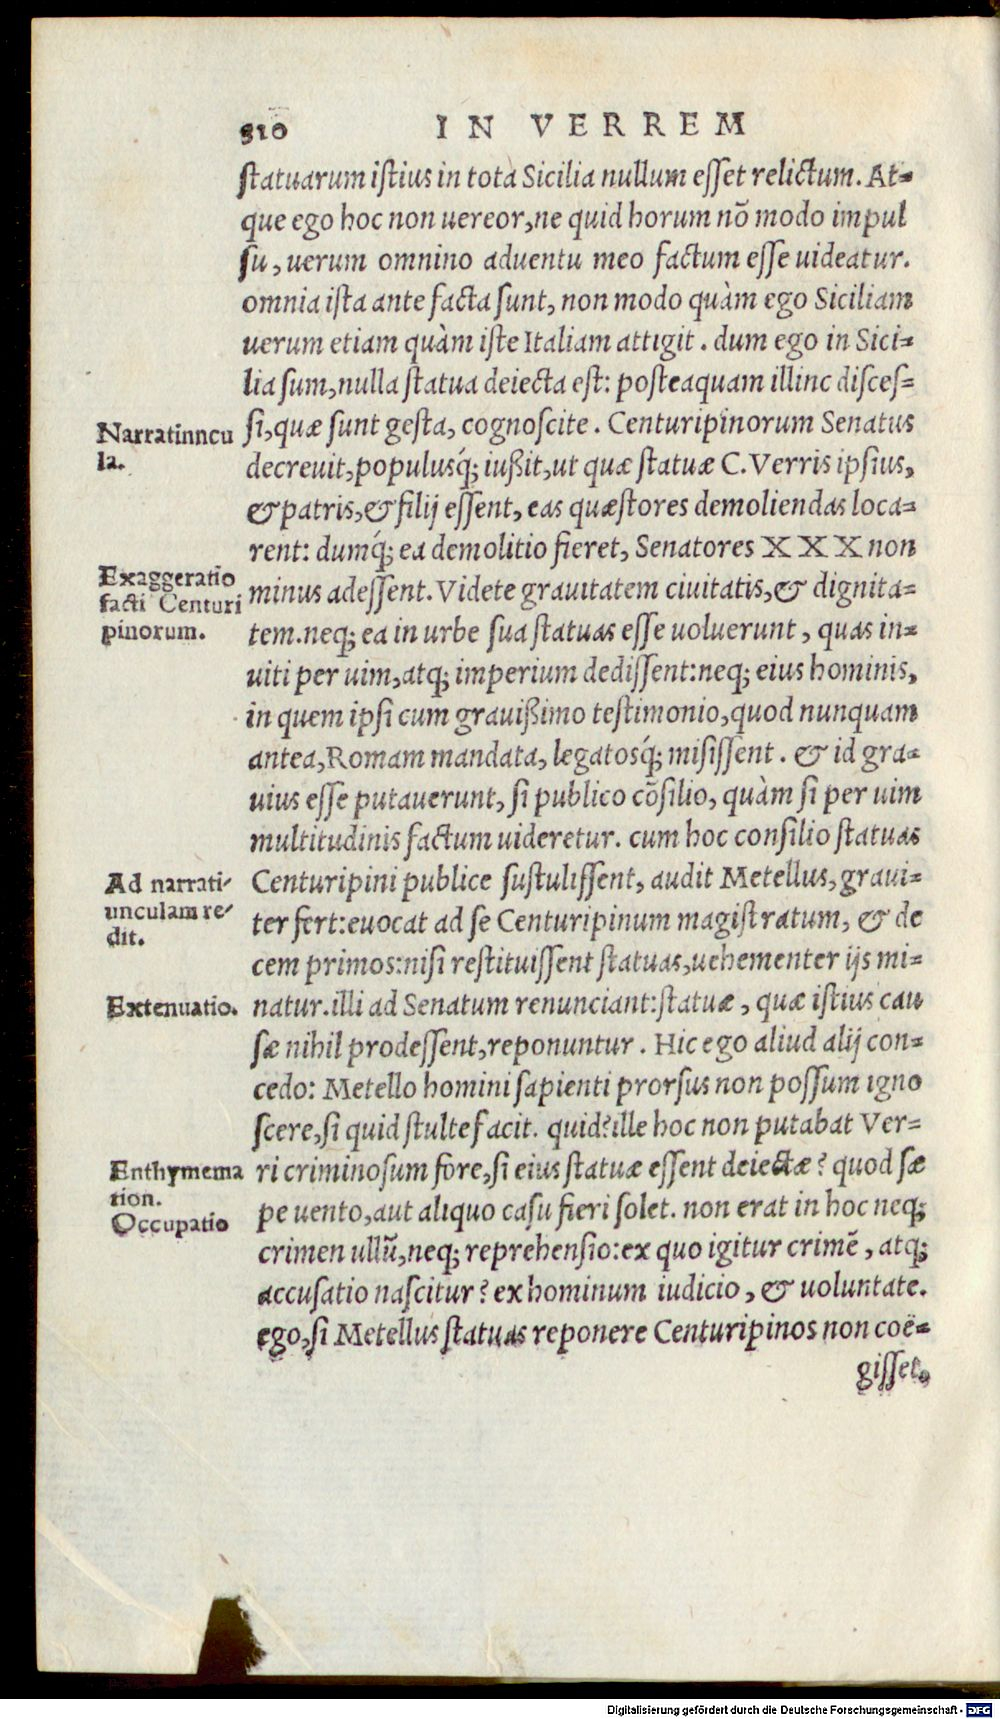 810
IN VERREM
statuarum istius in tota Sicilia nullum esset relictum. At=
que ego hoc non uereor, ne quid horum nō modo impul
su, uerum omnino aduentu meo factum esse uideatur.
omnia ista ante facta sunt, non modo quàm ego Siciliam
uerum etiam quàm iste Italiam attigit. dum ego in Sici=
lia sum, nulla statua deiecta est: posteaquam illinc disces=
si, quæ sunt gesta, cognoscite. Centuripinorum Senatus
decreuit, populusq́; iußit, ut quæ statuæ C. Verris ipsius,
& patris, & filij essent, eas quæstores demoliendas loca=
rent: dumq́; ea demolitio fieret, Senatores XXX non
minus adessent. Videte grauitatem ciuitatis, & dignita=
tem. neq; ea in urbe sua statuas esse uoluerunt, quas in=
uiti per uim, atq; imperium dedissent: neq; eius hominis,
in quem ipsi cum grauißimo testimonio, quod nunquam
antea, Romam mandata, legatosq́; misissent. & id gra=
uius esse putauerunt, si publico cōsilio, quàm si per uim
multitudinis factum uideretur. cum hoc consilio statuas
Centuripini publice sustulissent, audit Metellus, graui=
ter fert: euocat ad se Centuripinum magistratum, & de
cem primos: nisi restituissent statuas, uehementer ijs mi=
natur. illi ad Senatum renunciant: statuæ, quæ istius cau
sæ nihil prodessent, reponuntur. Hic ego aliud alij con=
cedo: Metello homini sapienti prorsus non possum igno
scere, si quid stulte facit. quid? ille hoc non putabat Ver=
ri criminosum fore, si eius statuæ essent deiectæ? quod sæ
pe uento, aut aliquo casu fieri solet. non erat in hoc neq;
crimen ullū, neq; reprehensio: ex quo igitur crimē, atq;
accusatio nascitur? ex hominum iudicio, & uoluntate.
ego, si Metellus statuas reponere Centuripinos non coë=
gisset,
Narratinncu
la.
Exaggeratio
facti Centuri
pinorum.
Ad narrati-
unculam re-
dit.
Extenuatio.
Enthymema
tion.
Occupatio
Digitalisierung gefördert durch die Deutsche Forschungsgemeinschaft - DFG